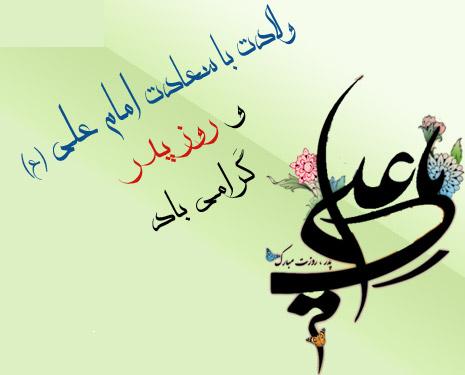 ولادت با سعادت امام علی (ع)
و روز پدر
گرامی باد
یا علی
پدر ، روزت مبارک